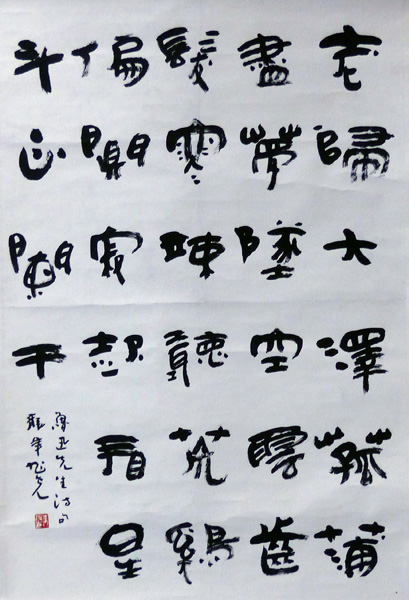 老歸大澤菰蒲
盡夢墜空雲齒
髮寒竦聽荒鷄
偏闃寂起看星
斗正闌干
魯迅先生詩句